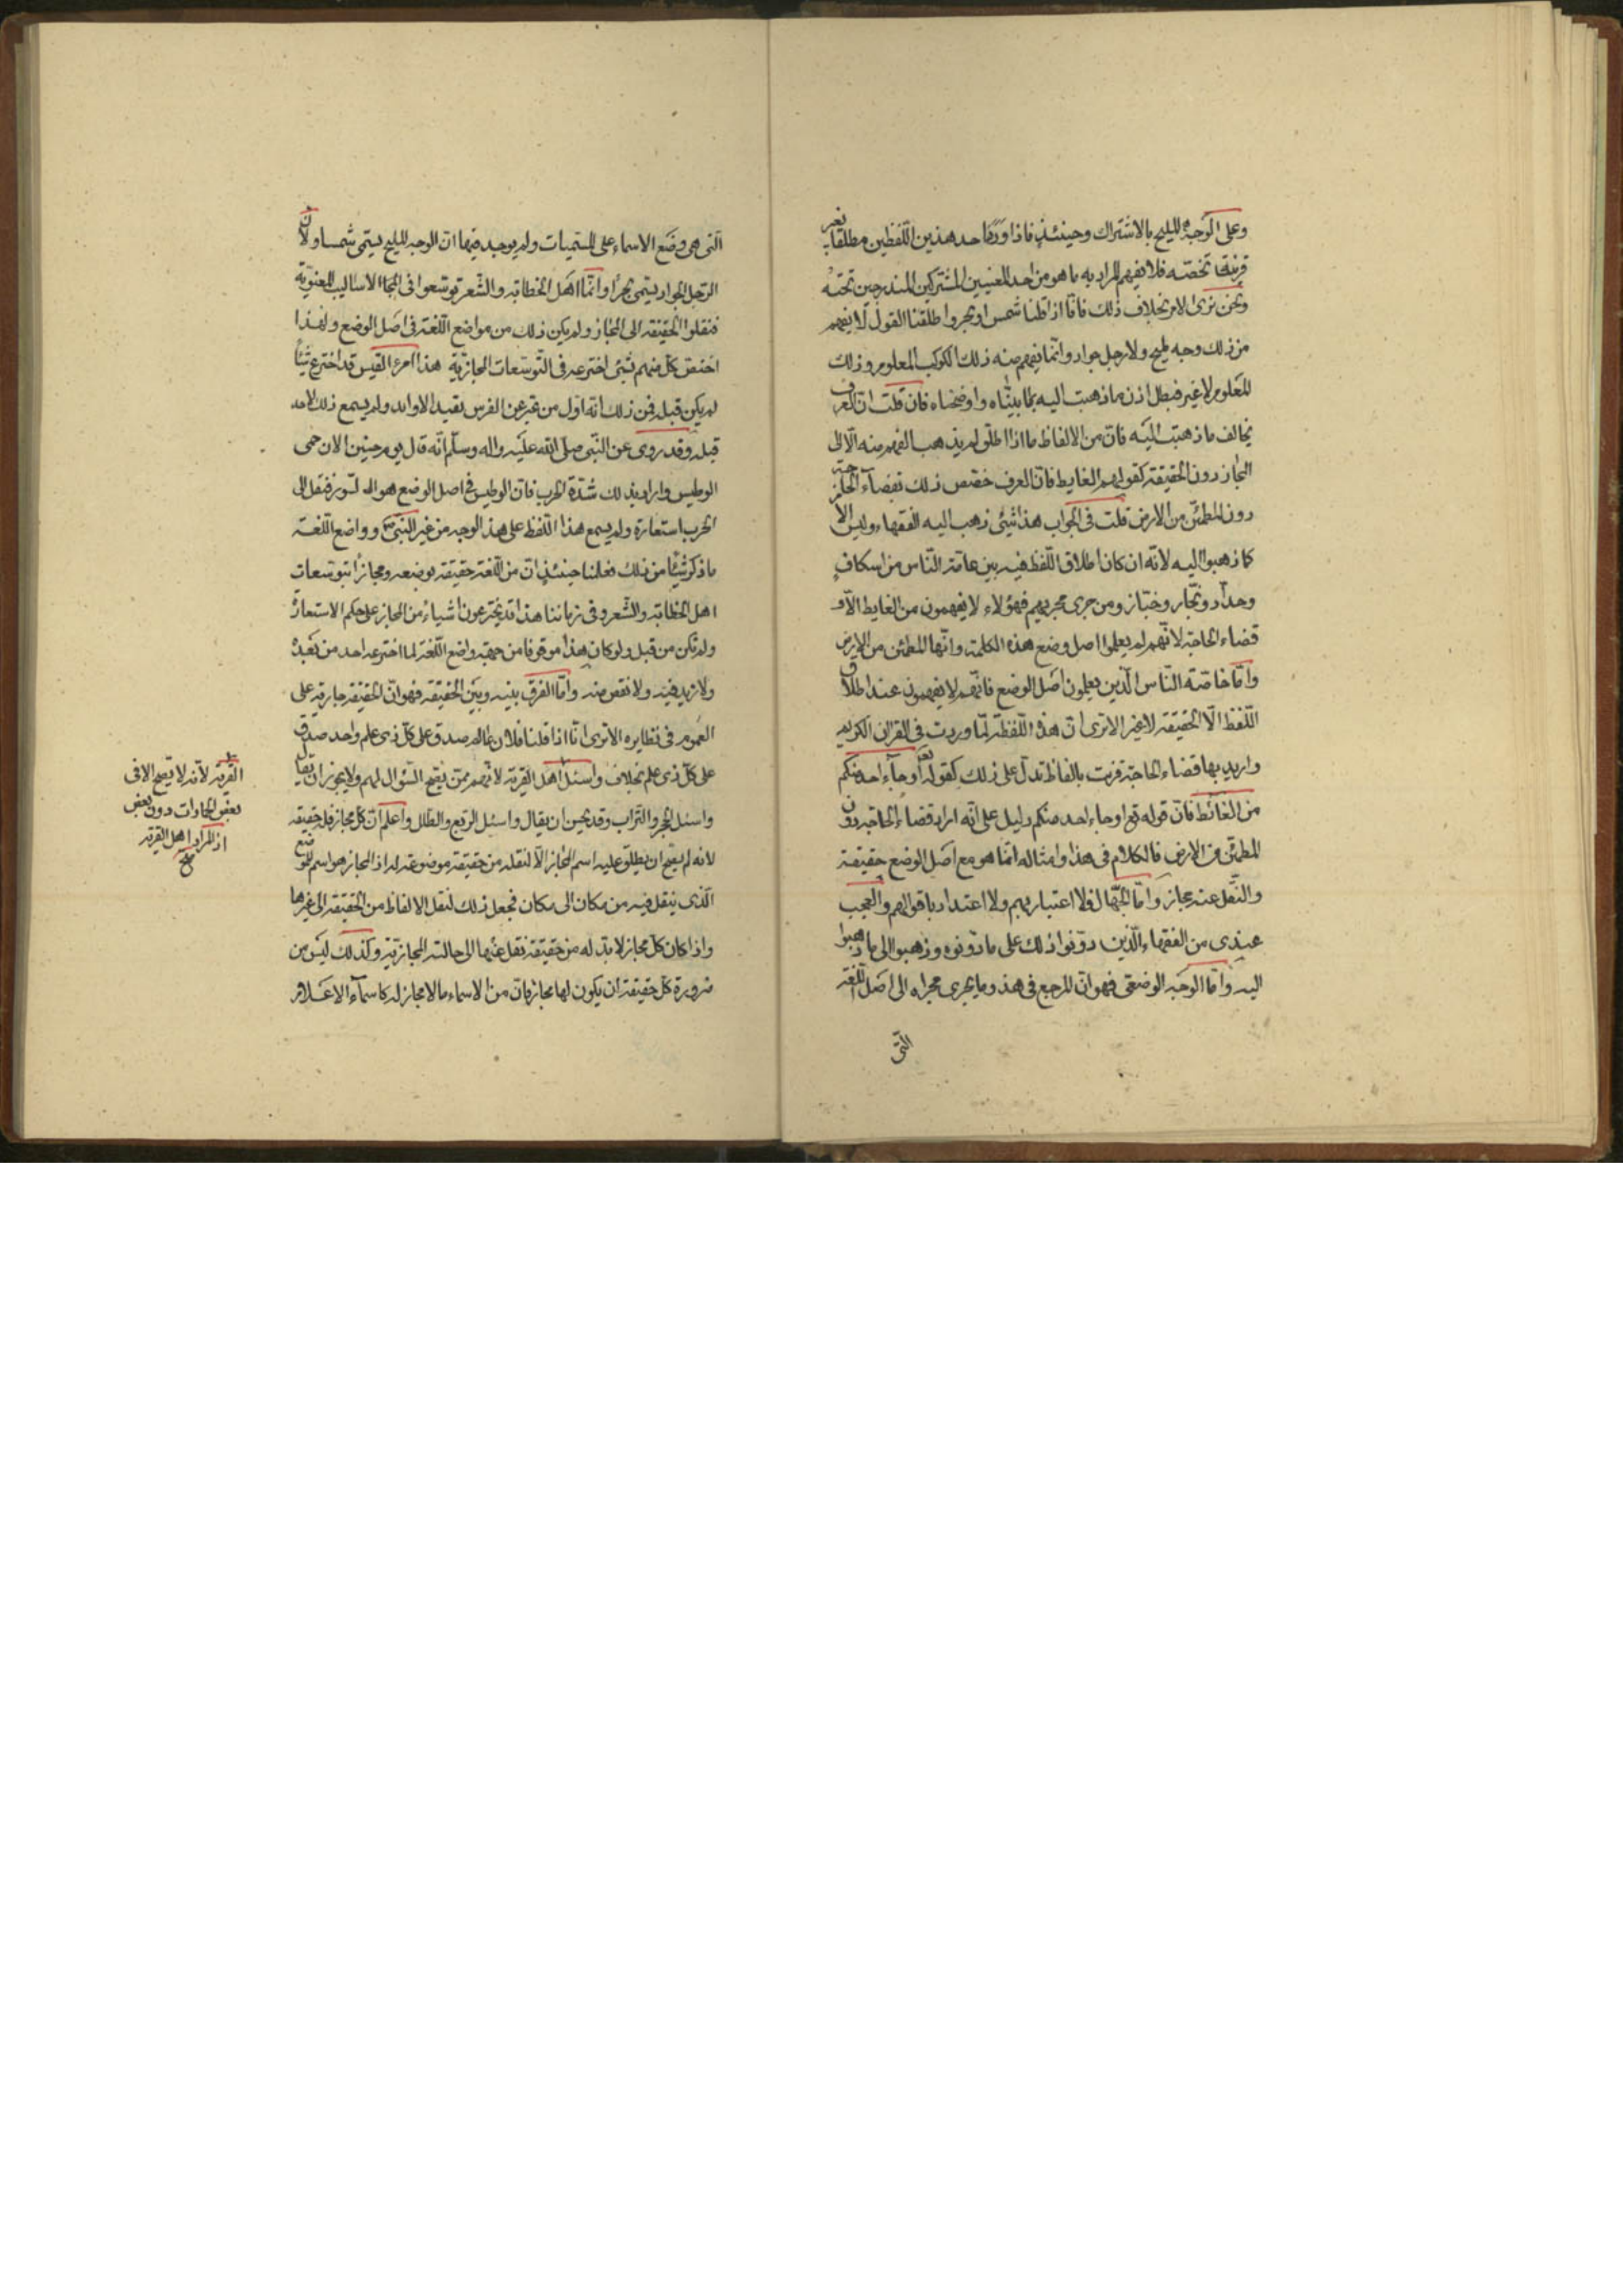 وعلى الوجه المليح بالاشتراك وحينئذ فاذا ورد احد هذين اللفظين مطلقا بغير
قرينة تخصّصه فلا يفهم المراد به ما هو من احد المعنيين المشتركين المندرجين تحته
ونحن نرى الامر بخلاف ذلك فانّا اذا قلنا شمس او بحر واطلقنا القول لا يفهم
من ذلك وجه مليح ولا رجل جواد وانّما يفهم منه ذلك الكوكب المعلوم وذلك
المعلوم لا غير فبطل اذن ما ذهبت اليه بما بيّنّاه واوضحناه فان قلت انّ العرف
يخالف ما ذهبت اليه فانّ من الالفاظ ما اذا اطلق لم يذهب الفهم منه الّا الى
المجاز دون الحقيقة كقولهم الغايط فانّ العرف خصّص ذلك بقضاء الحاجة
دون المطمئن من الارض قلت في الجواب هذا شيئ ذهب اليه الفقهاء وليس الامر
كما ذهبوا اليه لانّه ان كان اطلاق اللّفظ فيه بين عامّة النّاس من اسكاف
وحدّاد ونجّار وخبّاز ومن جرى مجريهم فهؤلاء لا يفهمون من الغايط الّا
قضاء الحاجة لانّهم لم يعلموا اصل وضع هذه الكلمة وانّها المطمئن من الارض
وامّا خاصّة النّاس الّذين يعلمون اصل الوضع فانّهم لا يفهمون عند اطلاق
اللّفظ الّا الحقيقة لا غير الا ترى انّ هذه اللّفظة لمّا وردت في القران الكريم
واريد بها قضاء الحاجة قرنت بالفاظ تدلّ على ذلك كقوله تعالى او جاء احد منكم
من الغائط فانّ قوله تع او جاء احد منكم دليل على انّه اراد قضاء الحاجة دون
المطمئن من الارض فالكلام في هذا وامثاله انّما هو مع اصل الوضع حقيقة
والنّقل عنه مجاز وامّا الجهّال فلا اعتبار بهم ولا اعتداد باقوالهم والعجب
عندي من الفقهاء الّذين دوّنوا ذلك على ما دوّنوه وذهبوا الى ما ذهبوا
اليه وامّا الوجه الوضعي فهو انّ المرجع في هذا وما يجري مجراه الى اصل اللّغة
الّتي
الّتي هي وضع الاسماء على المسمّيات ولم يوجد فيها انّ الوجه المليح يسمّى شمسا ولا انّ
الرّجل الجواد يسمّى بحرا وانّما اهل الخطابة والشّعر توسّعوا في الاساليب المعنويّة
فنقلوا الحقيقة الى المجاز ولم يكن ذلك من مواضع اللّغة في اصل الوضع ولهذا
اختصّ كلّ منهم بشئ اخترعه في التّوسّعات المجازيّة هذا امرء القيس قد اخترع شيئا
لم يكن قبله فمن ذلك انّه اوّل من عبّر عن الفرس بقيد الاوابد ولم يسمع ذلك لاحد
قبله وقد روى عن النّبي صلّى الله عليه واله وسلّم انّه قال يوم حنين الان حمى
الوطيس واراد بذلك شدّة الحرب فانّ الوطيس في اصل الوضع هو التّنور فنقل الى
الحرب استعارة ولم يسمع هذا اللّفظ على هذا الوجه من غير النّبي ص وواضع اللّغة
ما ذكر شيئا من ذلك فعلمنا حينئذ انّ من اللّغة حقيقة بوضعه ومجازا بتوسّعات
اهل الخطابة والشّعر وفي زماننا هذا قد يخترعون اشياء من المجاز على حكم الاستعارة
ولم تكن من قبل ولو كان هذا موقوفا من جهة واضع اللّغة لما اخترعه احد من بعده
ولا زيد فيه ولا نقص منه وامّا الفرق بينه وبين الحقيقة فهو انّ الحقيقة جارية على
العموم في نظايره الا ترى انّا اذا قلنا فلان عالم صدق على كلّ ذي علم واحد صدق
على كلّ ذي علم بخلاف واسئل اهل القرية لانّهم ممّن يصحّ السّؤال لهم ولا يجوز ان يقال
واسئل الحجر والتّراب وقد يحسن ان يقال واسئل الرّبع والطّلل واعلم انّ كلّ مجاز فله حقيقة
لانه لم يصحّ ان يطلق عليه اسم المجاز الّا لنقله من حقيقة موضوعة له اذ المجاز هو اسم للموضع
الّذي ينتقل فيه من مكان الى مكان فجعل ذلك لنقل الالفاظ من الحقيقة الى غيرها
واذا كان كلّ مجاز لا بدّ له من حقيقة نقل عنها الى حالته المجازيّة وكذلك ليس من
ضرورة كلّ حقيقة ان يكون لها مجاز فانّ من الاسماء ما لا مجاز له كاسماء الاعلام
القرية لانّه لا يصحّ الا في
بعض الجمادات دون بعض
اذ المراد اهل القرية
صح